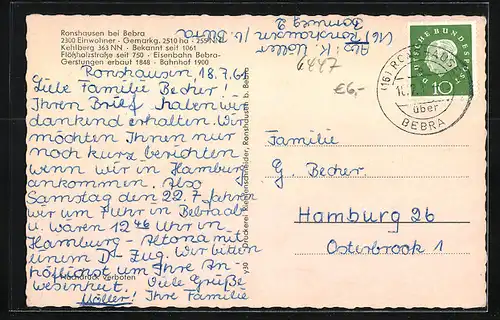 Ronshausen bei Bebra
2300 Einwohner - Gemarkg. 2510 ha - 255 NN
Kehlberg 363 NN - Bekannt seit 1061
Floßholzstraße seit 750 - Eisenbahn Bebra-
Gerstungen erbaut 1848 - Bahnhof 1900
Ronshausen, 18.7.61
Liebe Familie Becher!
Ihren Brief haben wir
dankend erhalten. Wir
möchten Ihnen nur
noch kurz berichten
wenn wir in Hamburg
ankommen. Also
Samstag den 22.7. fahren
wir um 7 Uhr in Bebra ab
u. wären 12 46 Uhr in
Hamburg-Altona mit
einem D-Zug. Wir bitten
höflichst um Ihre An-
wesenheit. Viele Grüße
Möller! Ihre Familie
Nachdruck verboten
Ronshausen b. Bebra
Abs. K. Möller
(16) Ronshausen b/ Bebra
€6,-
DEUTSCHE BUNDESPOST
10
über
BEBRA
Familie
G. Becher
Hamburg 26
Osterbrook 1